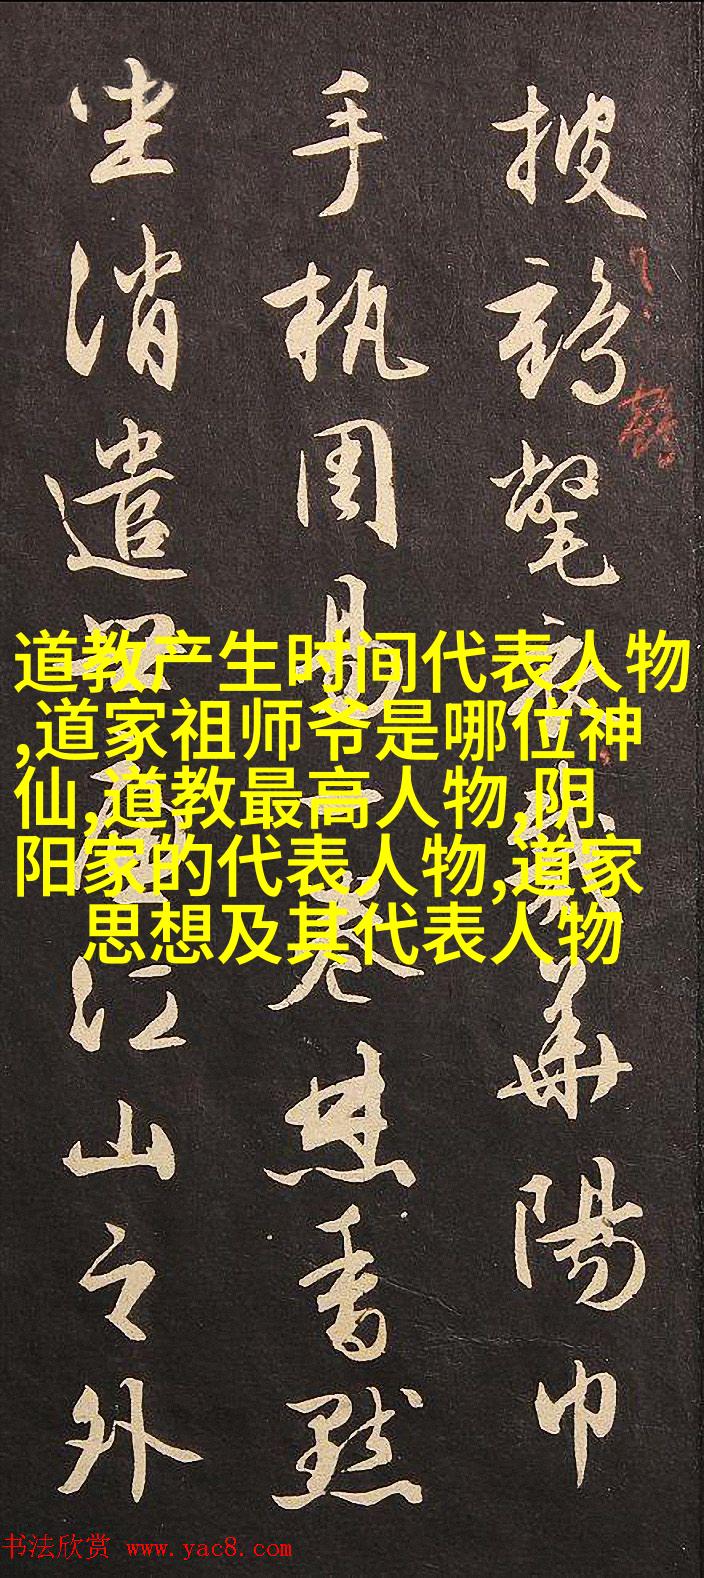 披鶴氅衣戴華陽巾
鶴
手執周易一卷焚香默
坐消遣世慮江山之外
道教产生时间代表人物
,道家祖师爷是哪位神
仙,道教最高人物,阴
阳家的代表人物,道家
思想及其代表人物
书法欣赏 www.yac8.com